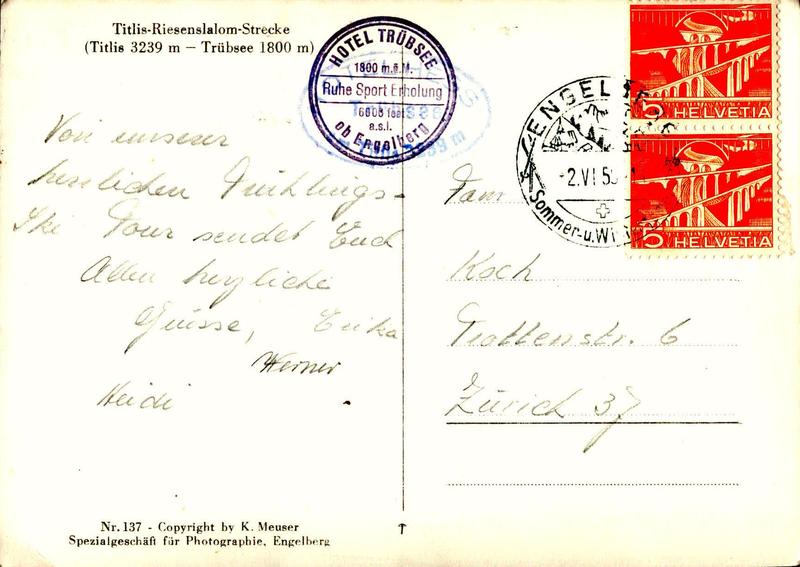 Titlis-Riesenslalom-Strecke
(Titlis 3239 m - Trübsee 1800 m)
HOTEL TRÜBSEE
1800 m.ü.M.
Ruhe Sport Erholung
6000 feet
a.s.l.
ob Engelberg
Von unserer
herrlichen Frühlings-
Ski Tour sendet Euch
Allen herzliche
Grüsse, Erika
Werner
Heidi
Nr. 137 - Copyright by K. Meuser
Spezialgeschäft für Photographie, Engelberg
ENGELBERG
-2.VI.5
Sommer-u.Wi
5
5 HELVETIA
Fam
Koch
Trottenstr. 6
Zürich 37